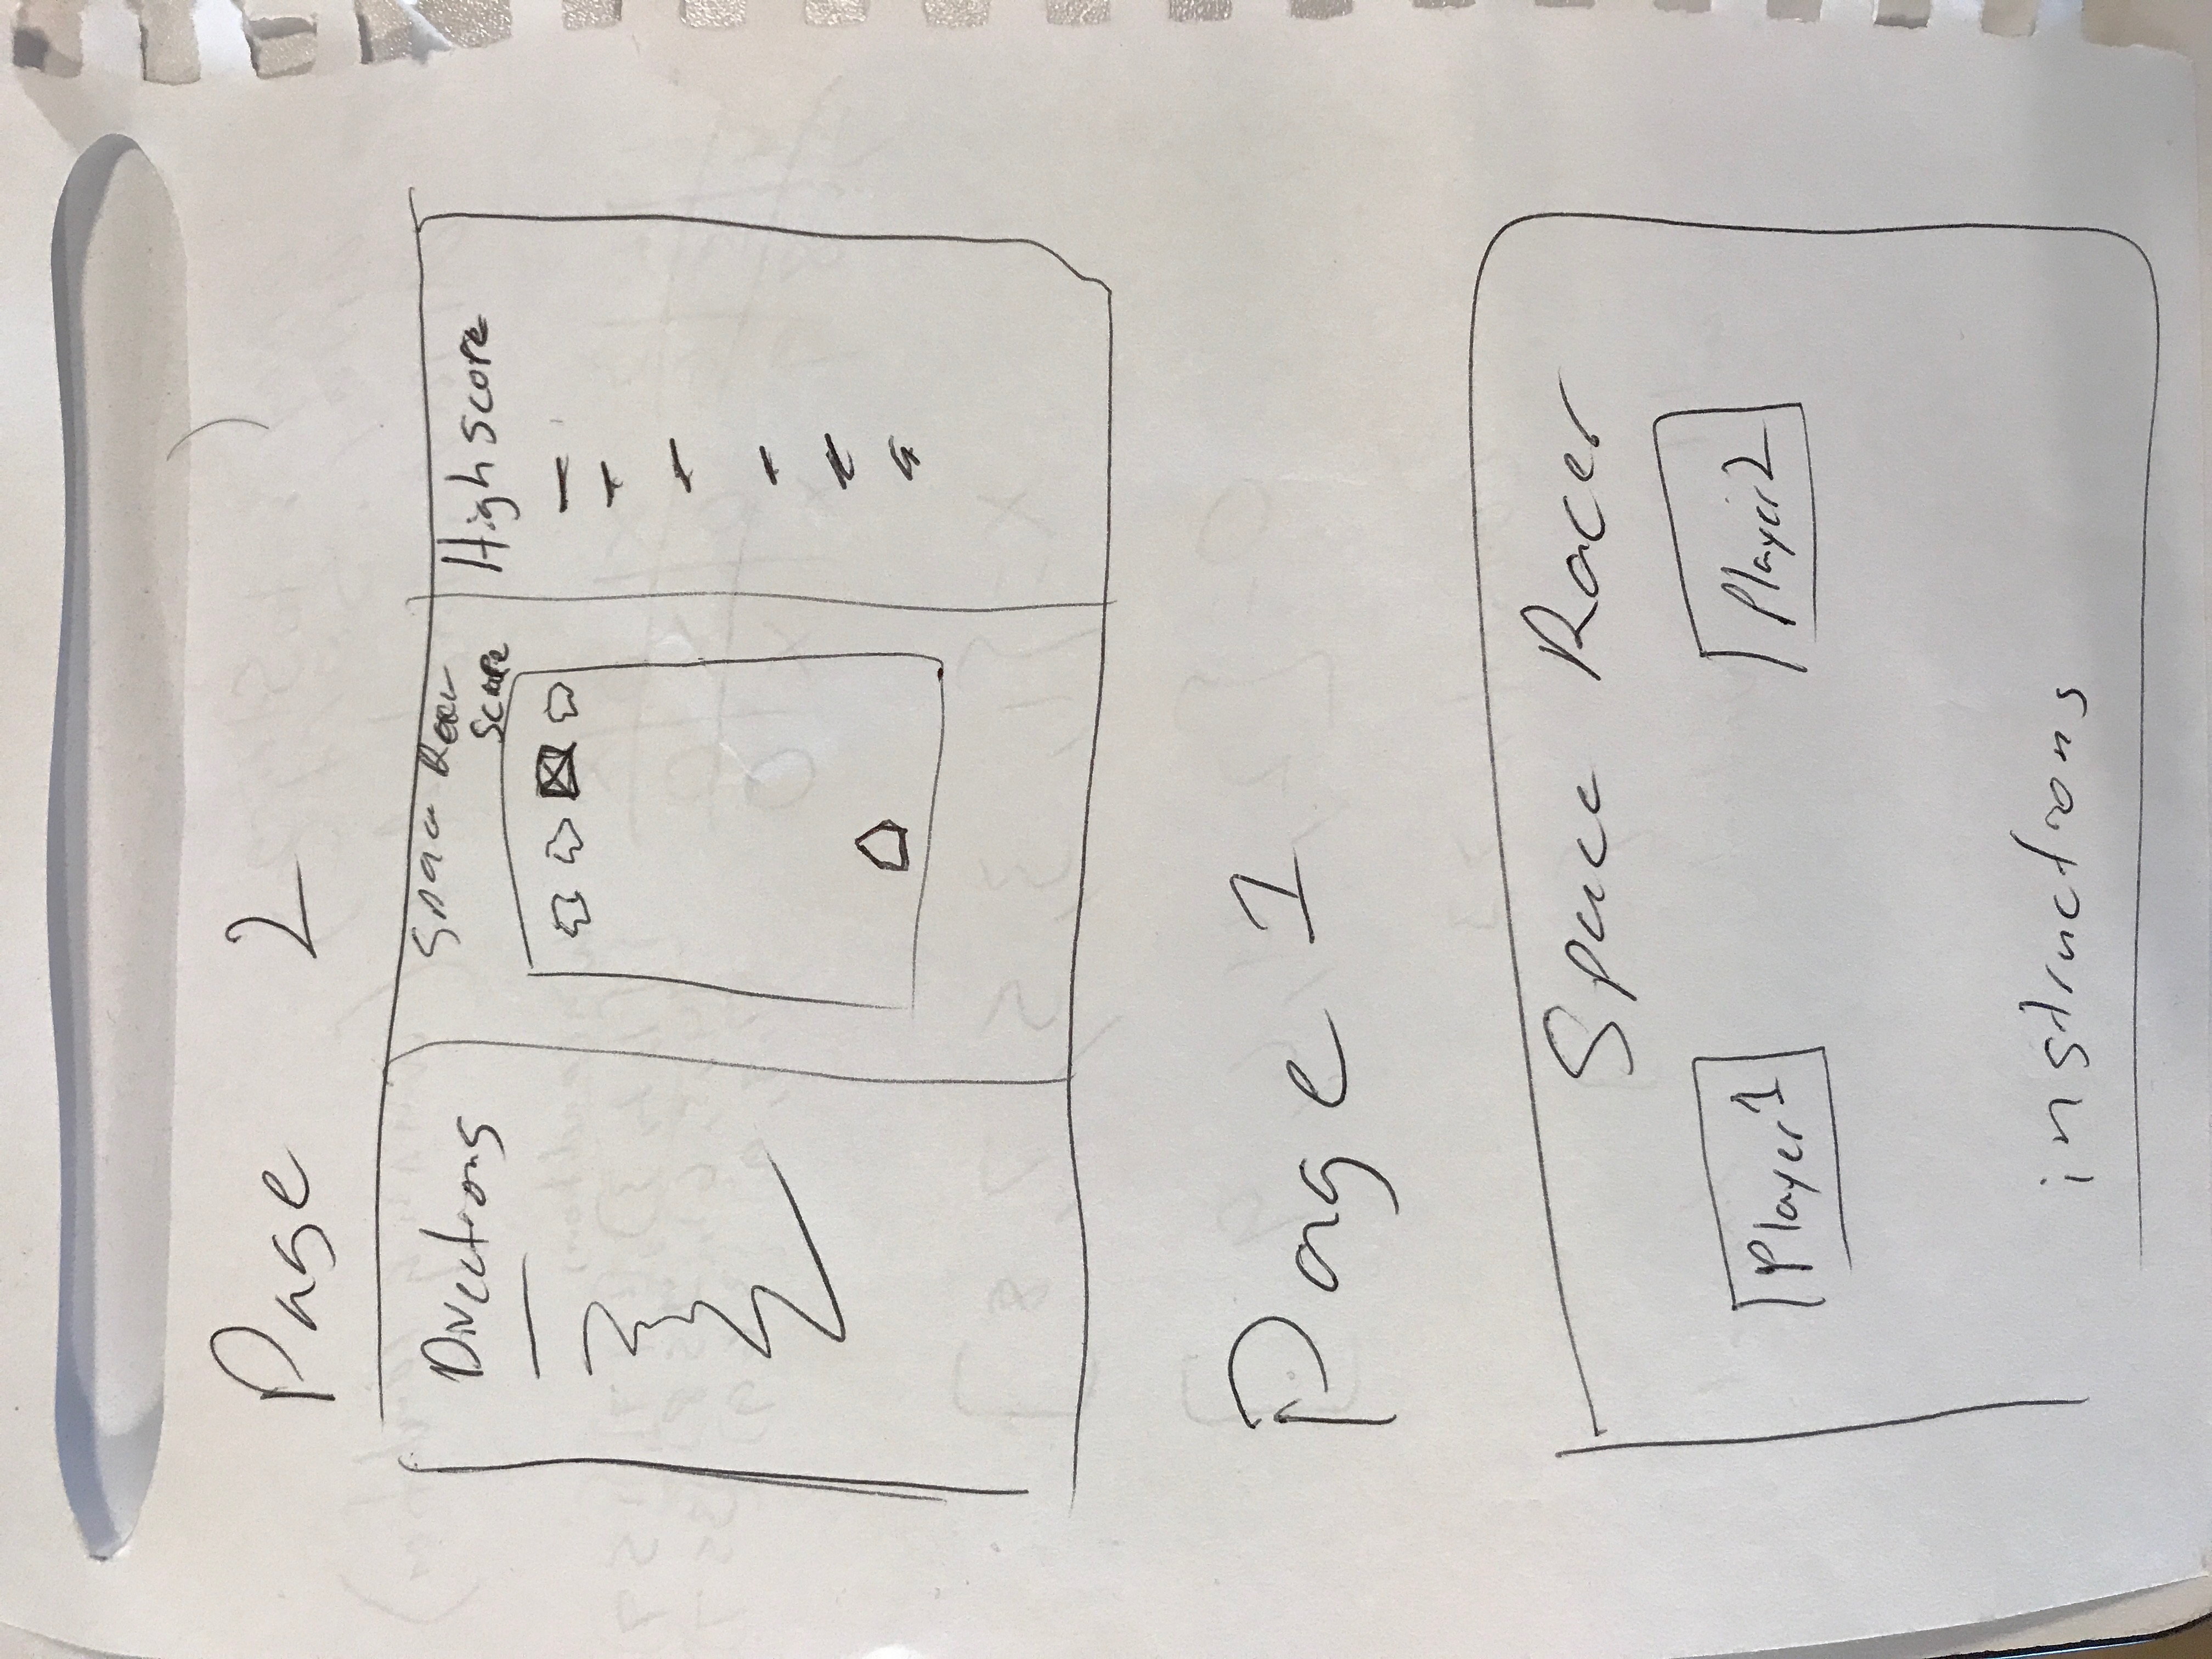 Page 2
Directions
Space Racer
Score
High score
Page 1
Space Racer
Player 1
Player 2
instructions